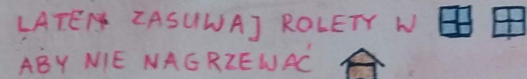 LATEM ZASUWAJ ROLETY W
ABY NIE NAGRZEWAĆ